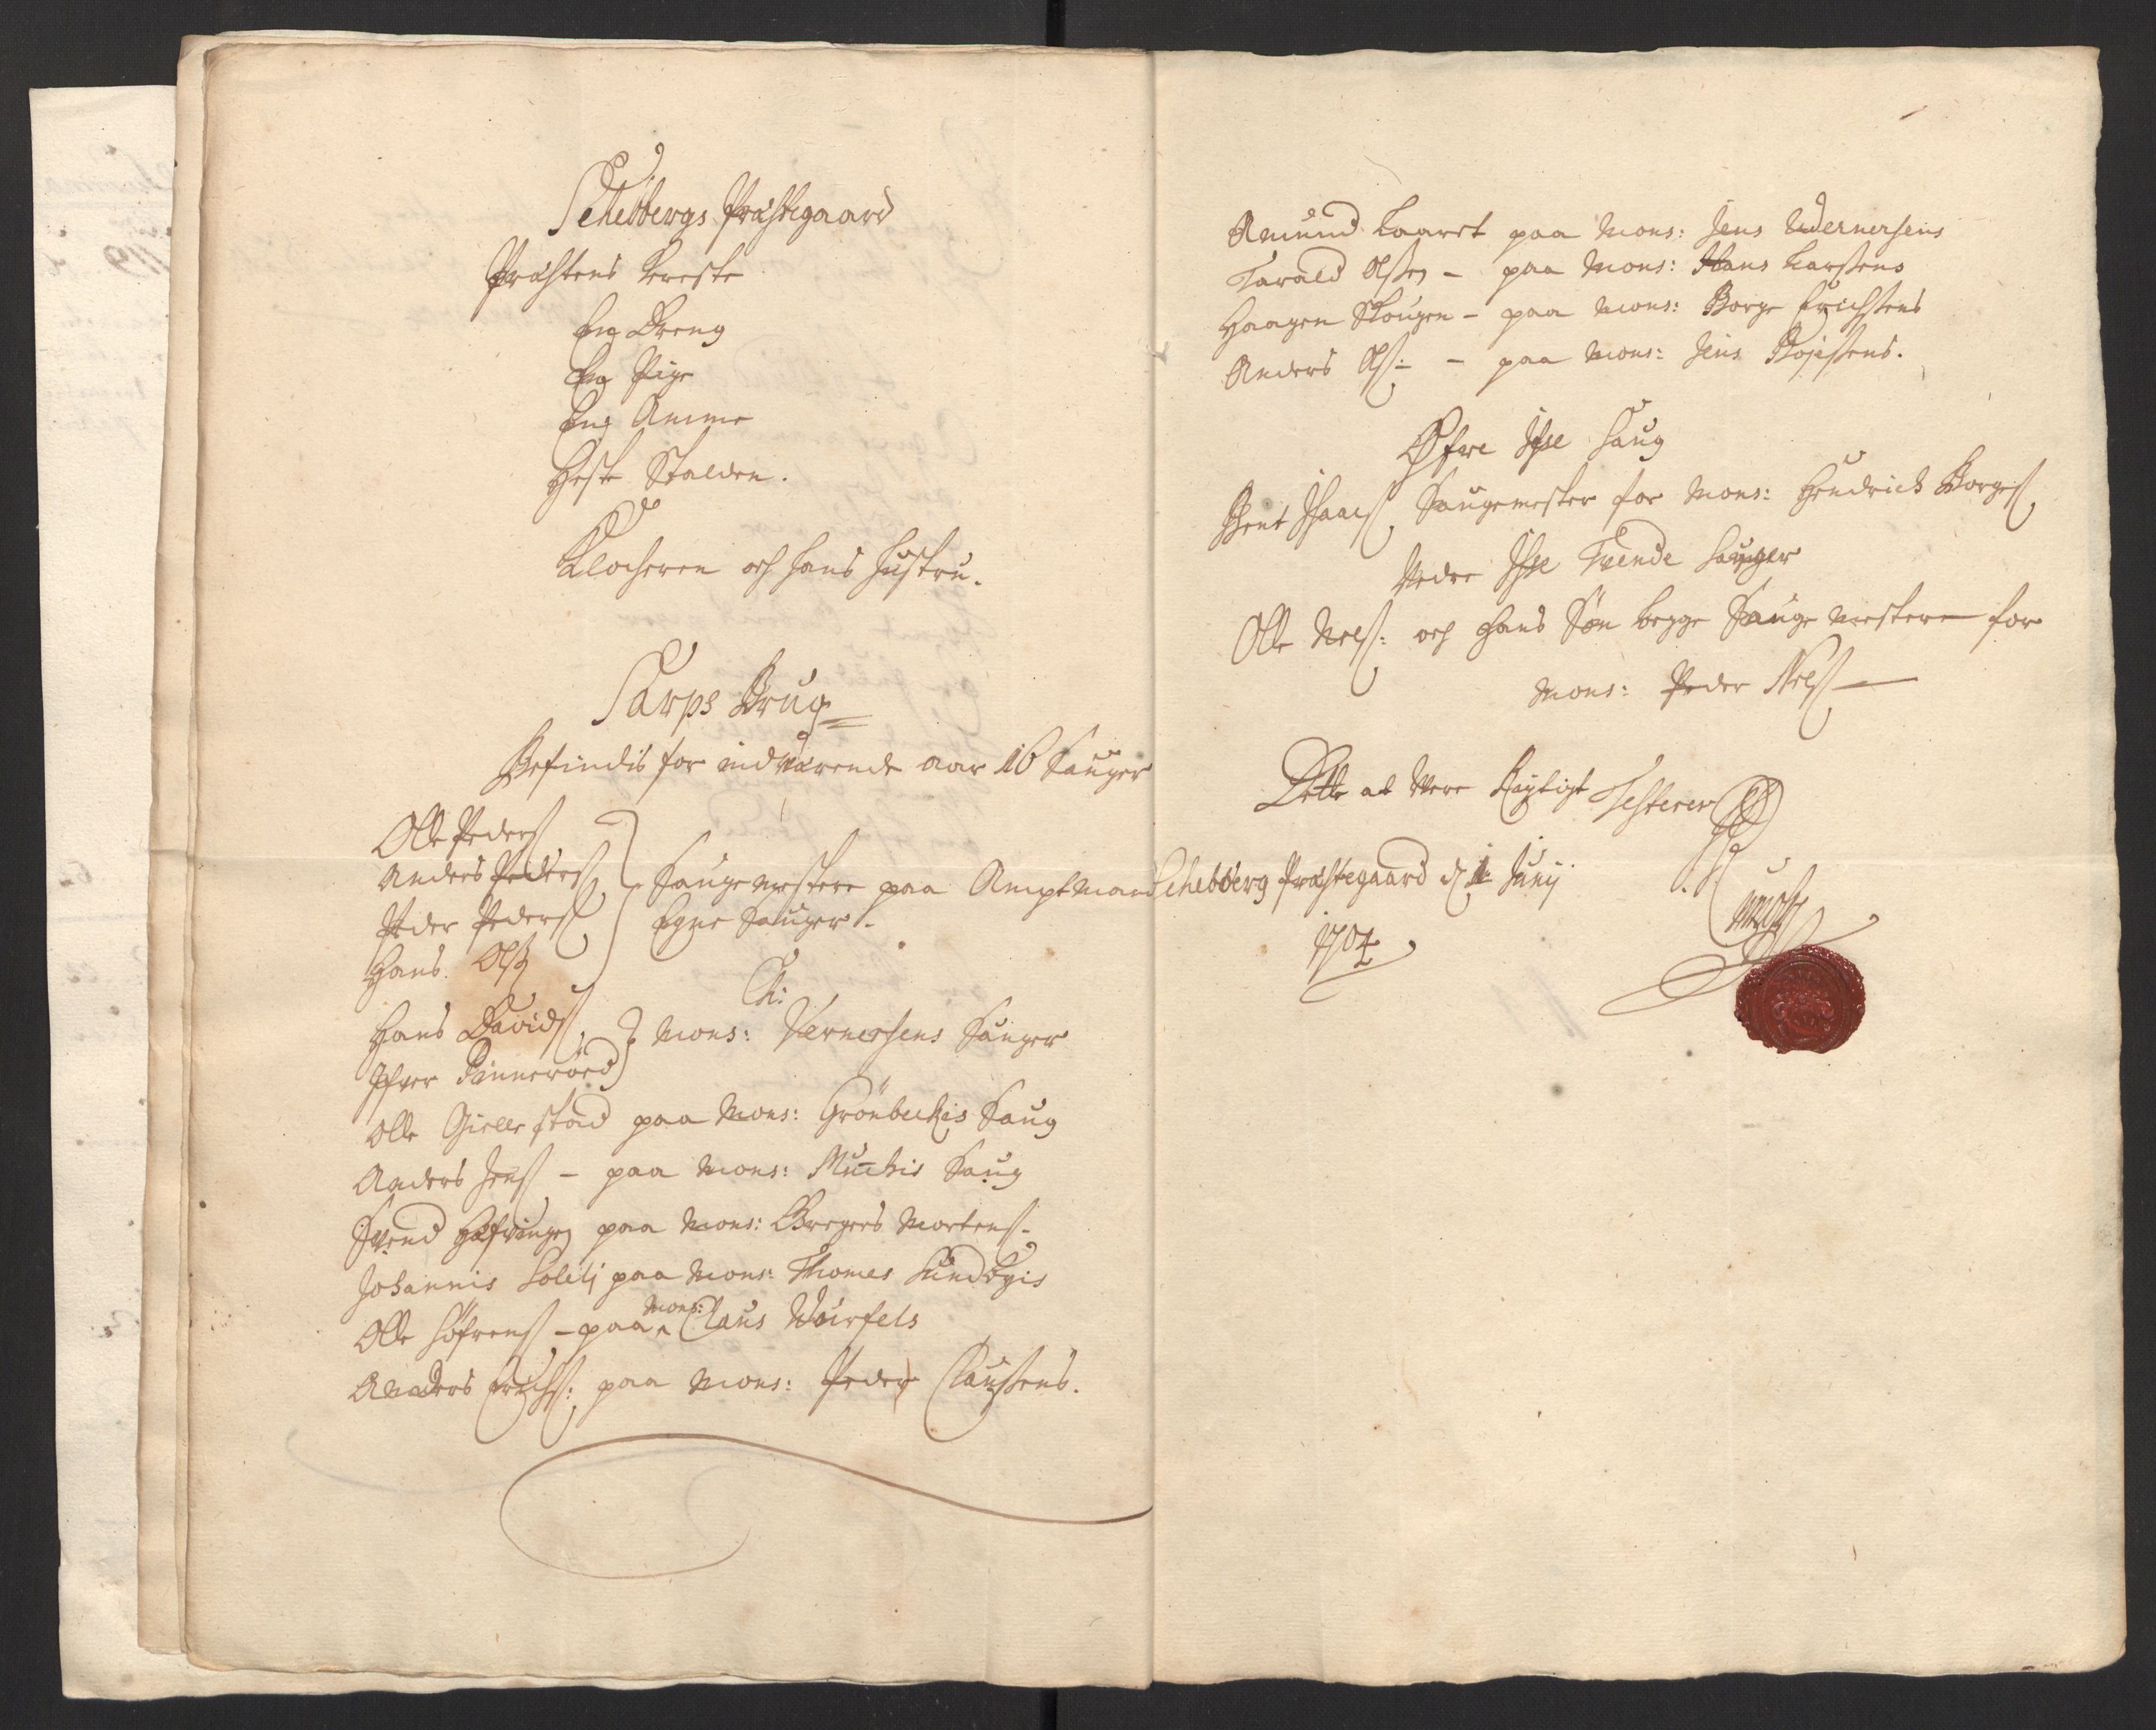 Schebbergs Præstegaard
Præstens Kereste
Eng Dreng
Eng Pige
Eng Amme
Heste Stalden.
Klocheren och hans Hustru.
Sarps Brug
Befindis for indværende aar 16 Sauger
Olle Peders
Anders Peders
Peder Peders
Hans Olss
Saugemestere paa Amptmand
Egne Sauger.
Hans Davids
Ifver Pinneröed
Mons: Vernersens Sauger
Olle Giellestad paa Mons: Grönbechis Saug
Anders Jens - paa Mons: Muchis Saug
Svend Hafvingen paa Mons: Gregers Mortens.
Johannis Solelj paa Mons: Thomes Lundbyis
Olle Söfrens - paa Mons: Claus Wurfels
Anders Erichs: paa Mons: Peder Claussens.
Amund Laaret paa Mons: Jens Wernersens
Tarald Olssen - paa Mons: Hans Larssens
Haagen Skougen - paa Mons: Borge Erichsens
Anders Ols: - paa Mons: Jens Bojessens.
Øfre Ise Saug
Bent Isacs Saugemester for Mons: Hendrich Borges
Nedre Ise Tvende Sauger
Olle Nels: och hans Søn begge Saugemestere for
Mons: Peder Nels
Dette at Vere Rigtigt Testerer
Schebberg Præstegaard d 1 Junij
1704